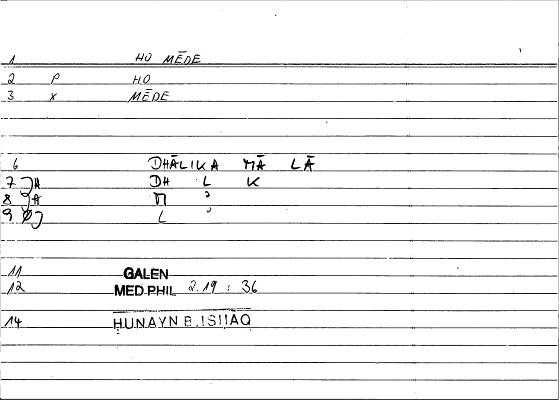 1 HO MĒDE
2 P HO
3 X MĒDE
6 DHĀLIKA MĀ LĀ
7 DH L K
8 M ʾ
9 L ʾ
11 GALEN
12 MED.PHIL 2.19 : 36
14 ḤUNAYN B. ISḤĀQ